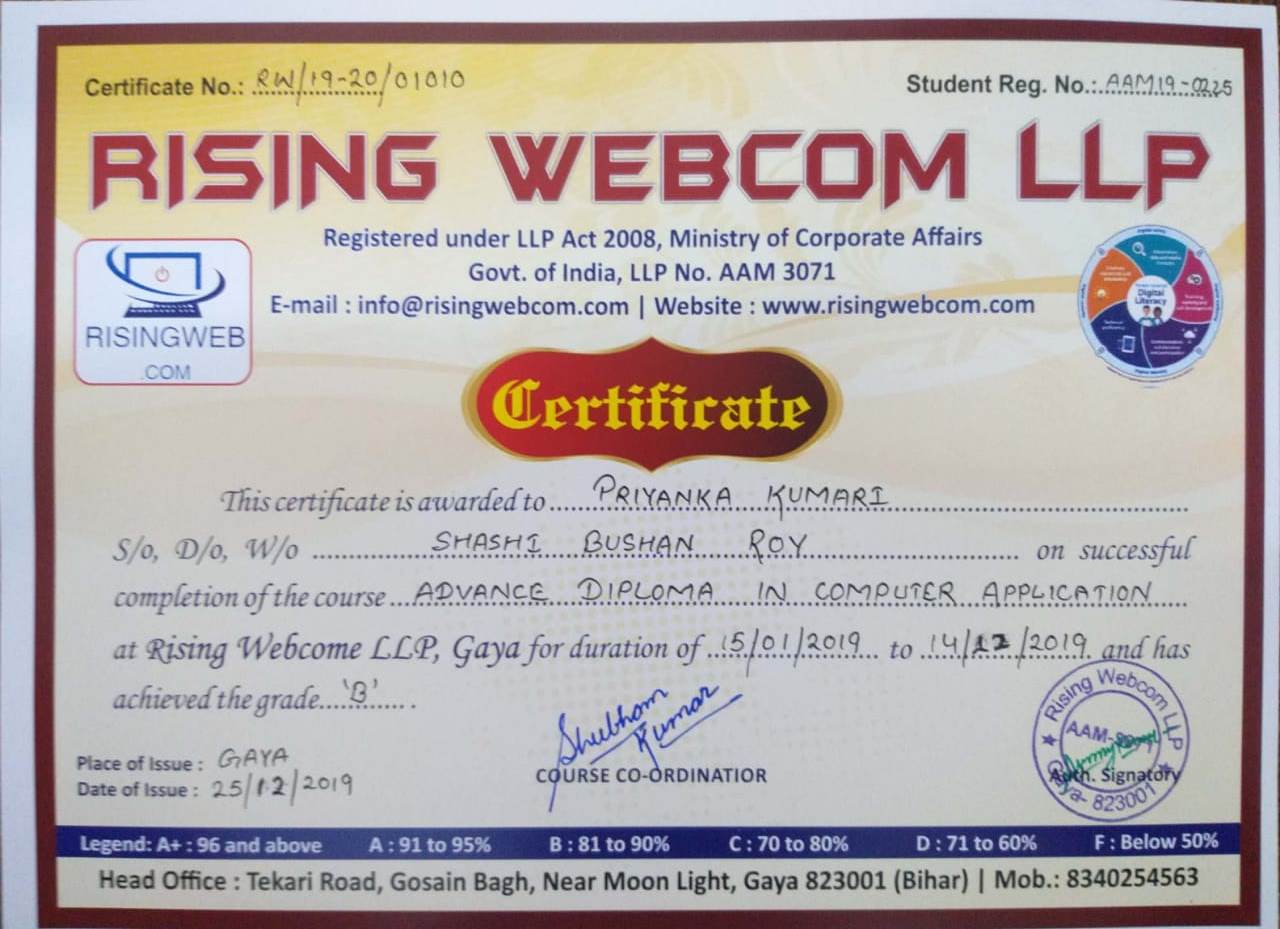 Certificate No.: RW/19-20/01010
Student Reg. No.: AAM19-0225
RISING WEBCOM LLP
Registered under LLP Act 2008, Ministry of Corporate Affairs
Govt. of India, LLP No. AAM 3071
E-mail : info@risingwebcom.com | Website : www.risingwebcom.com
RISINGWEB
.COM
Digital
Literacy
Certificate
This certificate is awarded to PRIYANKA KUMARI
S/o, D/o, W/o SHASHI BUSHAN ROY on successful
completion of the course ADVANCE DIPLOMA IN COMPUTER APPLICATION
at Rising Webcome LLP, Gaya for duration of 15/01/2019 to 14/12/2019 and has
achieved the grade 'B'
Place of Issue : GAYA
Date of Issue : 25/12/2019
Shubham
Kumar
COURSE CO-ORDINATIOR
Rising Webcom LLP
Gaya- 823001
Auth. Signatory
Legend: A+ : 96 and above A : 91 to 95% B : 81 to 90% C : 70 to 80% D : 71 to 60% F : Below 50%
Head Office : Tekari Road, Gosain Bagh, Near Moon Light, Gaya 823001 (Bihar) | Mob.: 8340254563